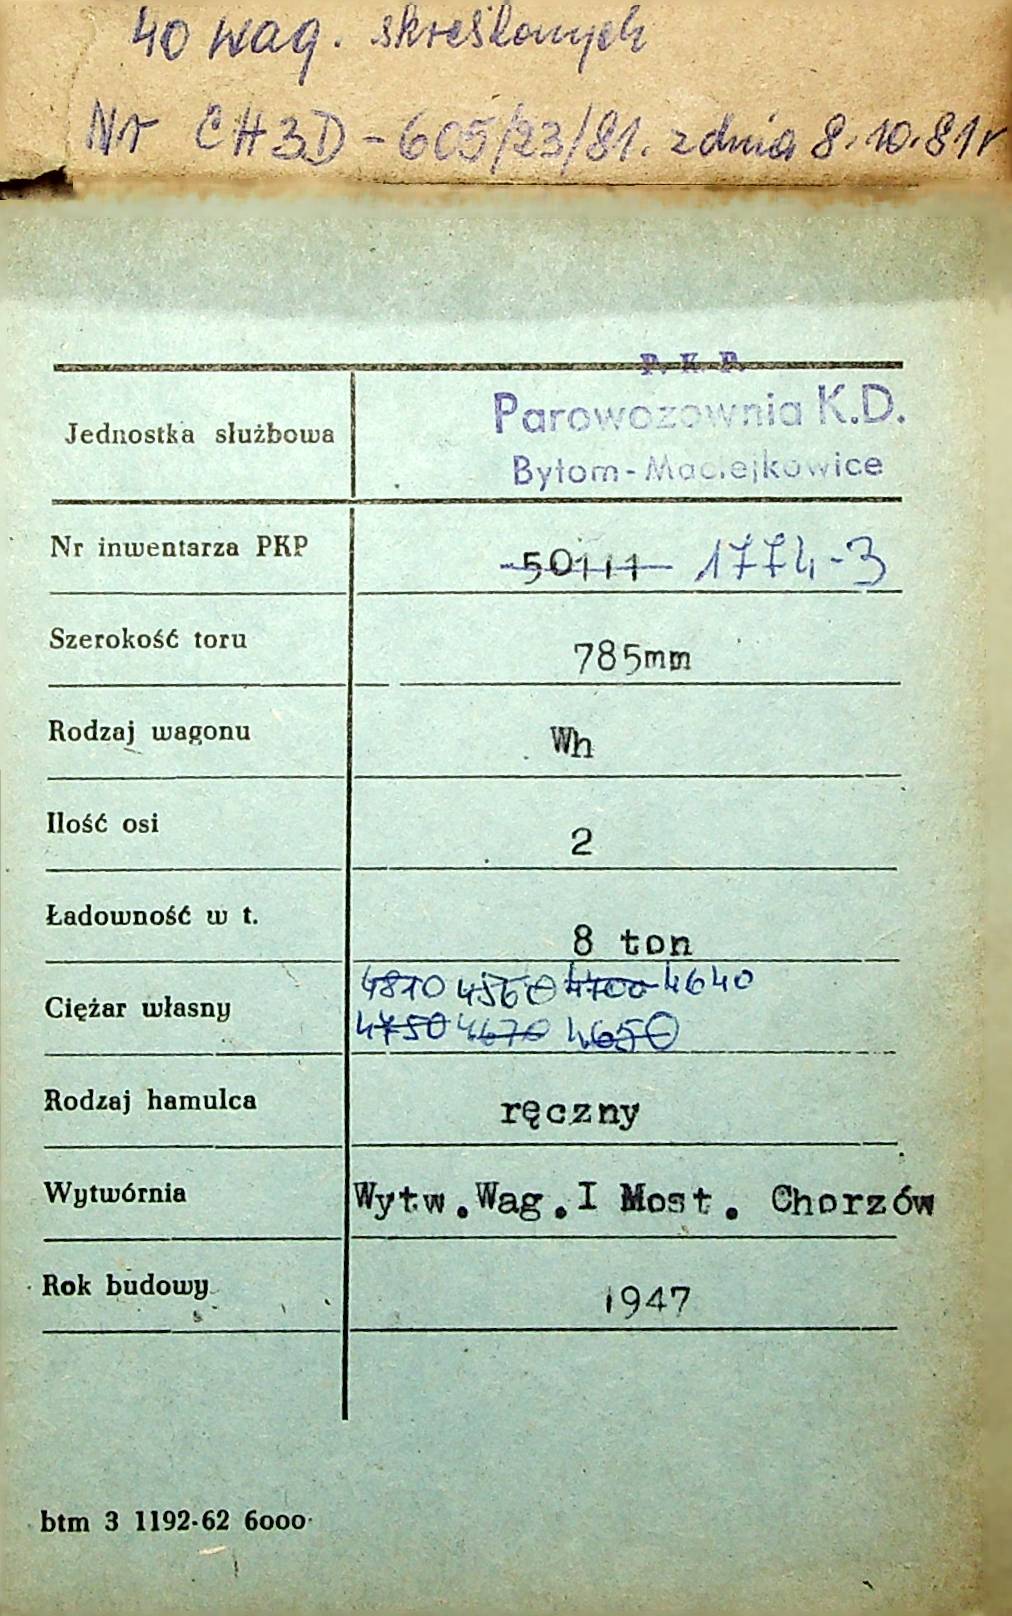 40 wag. skreślonych
Nr CH3D-605/23/81. z dnia 8.10.81r
P. K. P.
Jednostka służbowa Parowozownia K.D.
Bytom-Maciejkowice
Nr inwentarza PKP 50111 1774-3
Szerokość toru 785mm
Rodzaj wagonu Wh
Ilość osi 2
Ładowność w t. 8 ton
Ciężar własny 4810 4560 4700 4640
4750 4670 4650
Rodzaj hamulca ręczny
Wytwórnia Wytw.Wag.I Most. Chorzów
Rok budowy 1947
btm 3 1192-62 6000